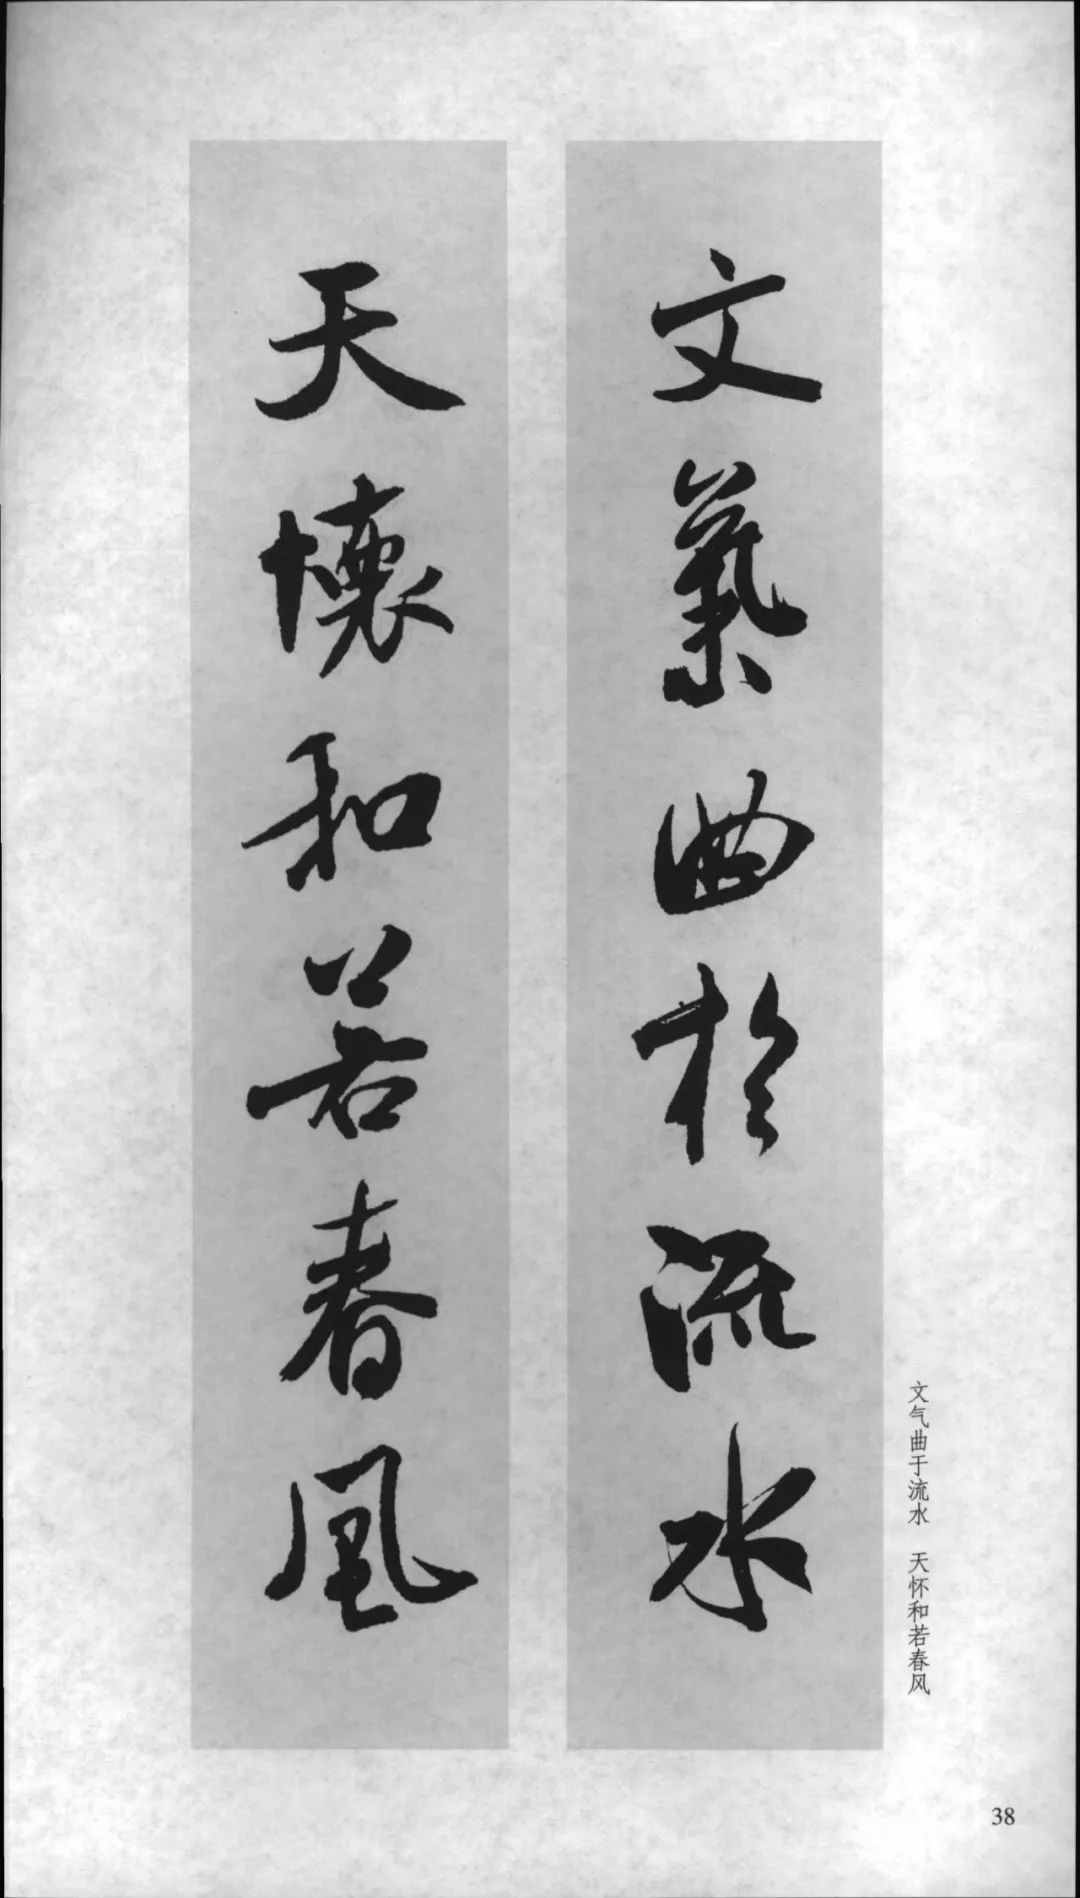 文氣曲於流水
天懷和若春風
文气曲于流水　天怀和若春风
38